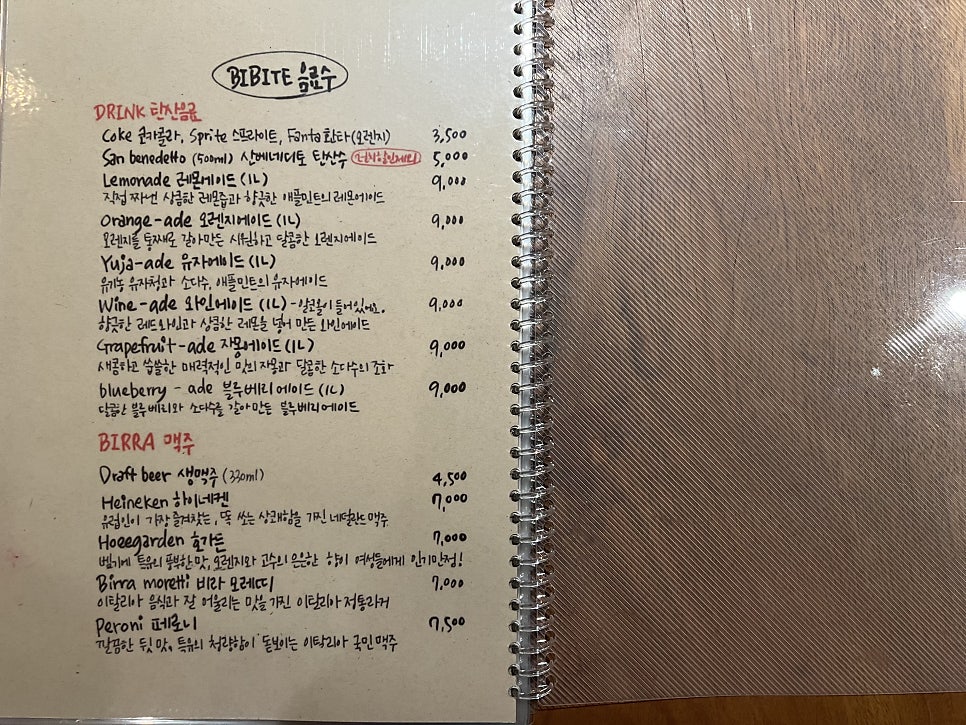 BIBITE 음료수
DRINK 탄산음료
Coke 코카콜라, Sprite 스프라이트, Fanta 환타(오렌지) 3,500
San benedetto (500ml) 산베네디토 탄산수 5,000
Lemonade 레몬에이드 (1L) 9,000
직접 짜낸 상큼한 레몬즙과 향긋한 애플민트의 레몬에이드
Orange-ade 오렌지에이드 (1L) 9,000
오렌지를 통째로 갈아만든 시원하고 달콤한 오렌지에이드
Yuja-ade 유자에이드 (1L) 9,000
유기농 유자청과 소다수, 애플민트의 유자에이드
Wine-ade 와인에이드 (1L) - 알코올이 들어있어요. 9,000
향긋한 레드와인과 상큼한 레몬을 넣어 만든 와인에이드
Grapefruit-ade 자몽에이드 (1L) 9,000
새콤하고 쌉쌀한 매력적인 맛의 자몽과 달콤한 소다수의 조화
blueberry - ade 블루베리에이드 (1L) 9,000
달콤한 블루베리와 소다수를 갈아만든 블루베리에이드
BIRRA 맥주
Draft beer 생맥주 (330ml) 4,500
Heineken 하이네켄 7,000
유럽인이 가장 즐겨찾는, 톡 쏘는 상쾌함을 가진 네덜란드 맥주
Hoeegarden 호가든 7,000
벨기에 특유의 풍부한 맛, 오렌지와 고수의 은은한 향이 여성들에게 인기만점!
Birra moretti 비라 모레띠 7,000
이탈리아 음식과 잘 어울리는 맛을 가진 이탈리아 정통라거
Peroni 페로니 7,500
깔끔한 뒷 맛, 특유의 청량함이 돋보이는 이탈리아 국민 맥주